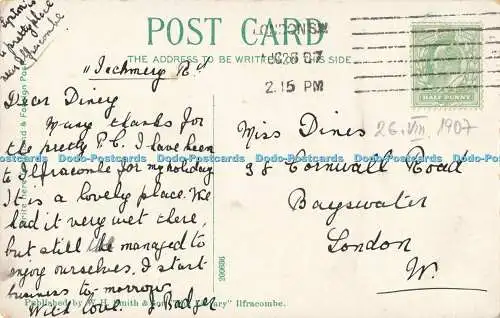 POST CARD
THE ADDRESS TO BE WRITTEN ON THIS SIDE.
LONDON S.W
AU 26 07
2.15 PM
HALF PENNY
26. VIII. 1907
Dear Diney
Many thanks for
the pretty P.C. I have been
to Ilfracombe for my holiday
It is a lovely place. We
had it very wet there,
but still we managed to
enjoy ourselves. I start
business to morrow
With love. J Badger
Miss Dines
38 Cornwall Road
Bayswater
London
W.
200936
Published by W. H. Smith & Son, "Library" Ilfracombe.
Dodo-Postcards Dodo-Postcards Dodo-Postcards Dodo-Postcards